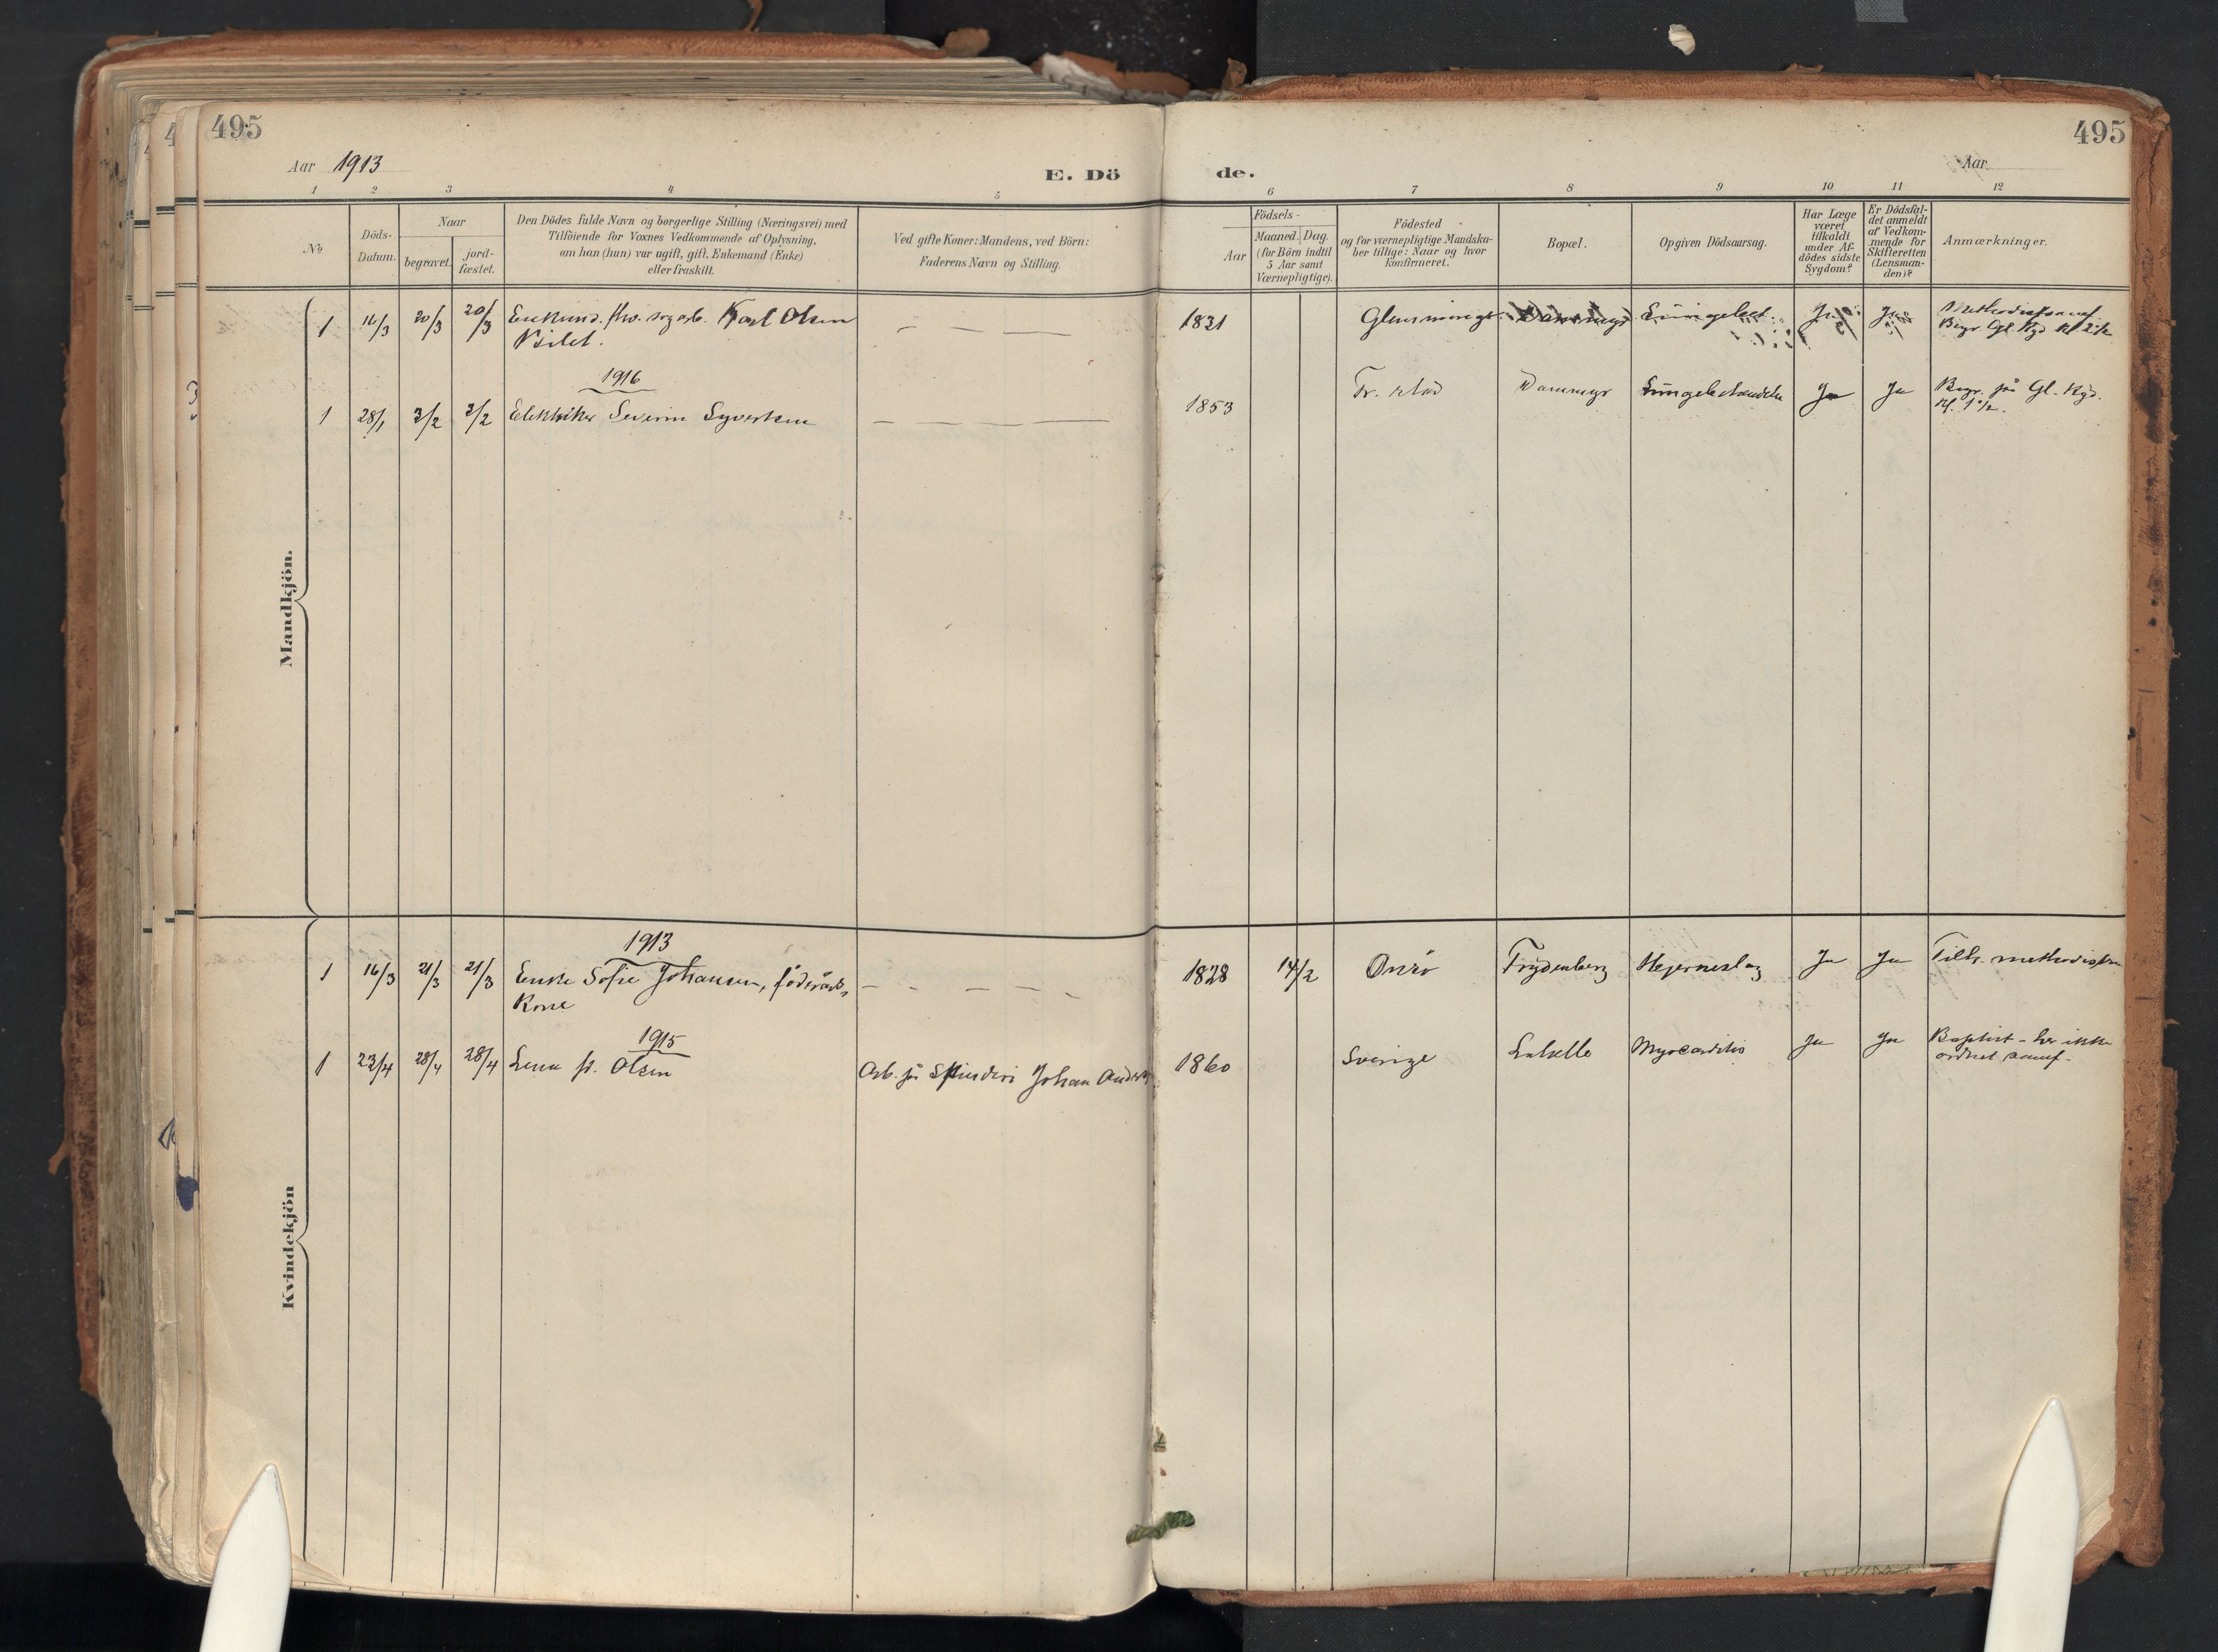 495
495
Aar 1913
E. Dö
de.
Aar
1
2
3
4
5
6
7
8
9
10
11
12
No
Döds-
Datum.
Naar
begravet.
jord-
fæstet.
Den Dödes fulde Navn og borgerlige Stilling (Næringsvei) med
Tilföiende for Voxnes Vedkommende af Oplysning,
om han (hun) var ugift, gift, Enkemand (Enke)
eller fraskilt.
Ved gifte Koner: Mandens, ved Börn:
Faderens Navn og Stilling.
Födsels-
Aar
Maaned. Dag.
(for Börn indtil
5 Aar samt
Værnepligtige).
Födested
og for værnepligtige Mandska-
ber tillige: Naar og hvor
konfirmeret.
Bopæl.
Opgiven Dödsaarsag.
Har Læge
været
tilkaldt
under Af-
dödes sidste
Sygdom?
Er Dödsfal-
det anmeldt
af Vedkom-
mende for
Skifteretten
(Lensman-
den)?
Anmærkninger.
Mandkjön.
1 16/3 20/3 20/3 Karl Olsen
1831 Ja Ja
1916
1 28/1 3/2 3/2 Elektriker Severin Syvertsen
1853 Fr.stad Dammyr Ja Ja Begr. på Gl. Kgd.
Kvindekjön
1913
1 16/3 21/3 21/3 Enke Sofie Johansen, föderåds
Kone
1828 14/2 Onsö Frydenberg Hjerneslag Ja Ja Tilh. methodistsa
1915
1 23/4 28/4 28/4 Lena f. Olsen Arb. på Spinderi Johan Anders
1860 Sverige Labella Myocarditis Ja Ja Baptist - her ikke
ordnet samf.